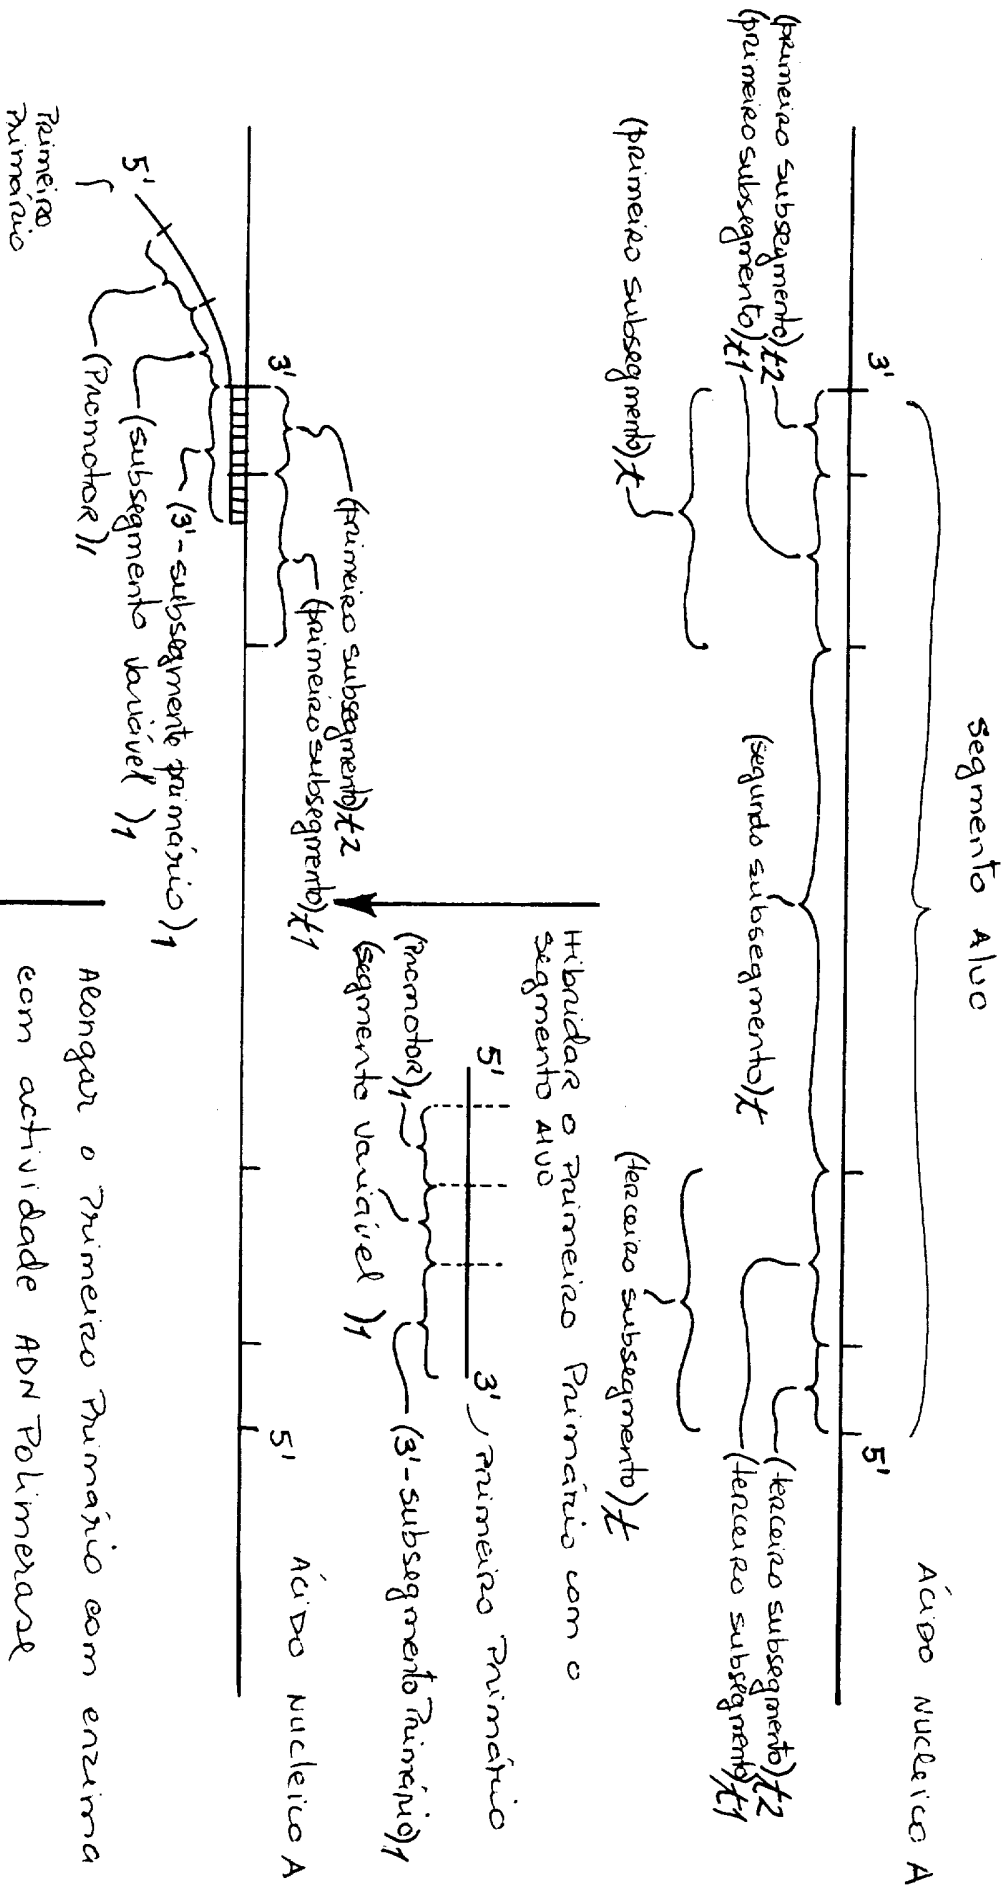 Segmento Alvo
3'
5'
Ácido Nucleico A
(primeiro subsegmento)t2
(primeiro subsegmento)t1
(primeiro subsegmento)t
(segundo subsegmento)t
(terceiro subsegmento)t2
(terceiro subsegmento)t1
(terceiro subsegmento)t
Hibridar o Primeiro Primário com o
Segmento Alvo
5'
3'
Primeiro Primário
(Promotor)1
(segmento variável)1
(3'-subsegmento Primário)1
(primeiro subsegmento)t2
(primeiro subsegmento)t1
3'
5'
Ácido Nucleico A
5'
Primeiro
Primário
(3'-subsegmente primário)1
(subsegmento variável)1
(Promotor)1
Alongar o Primeiro Primário com enzima
com actividade ADN Polimerase